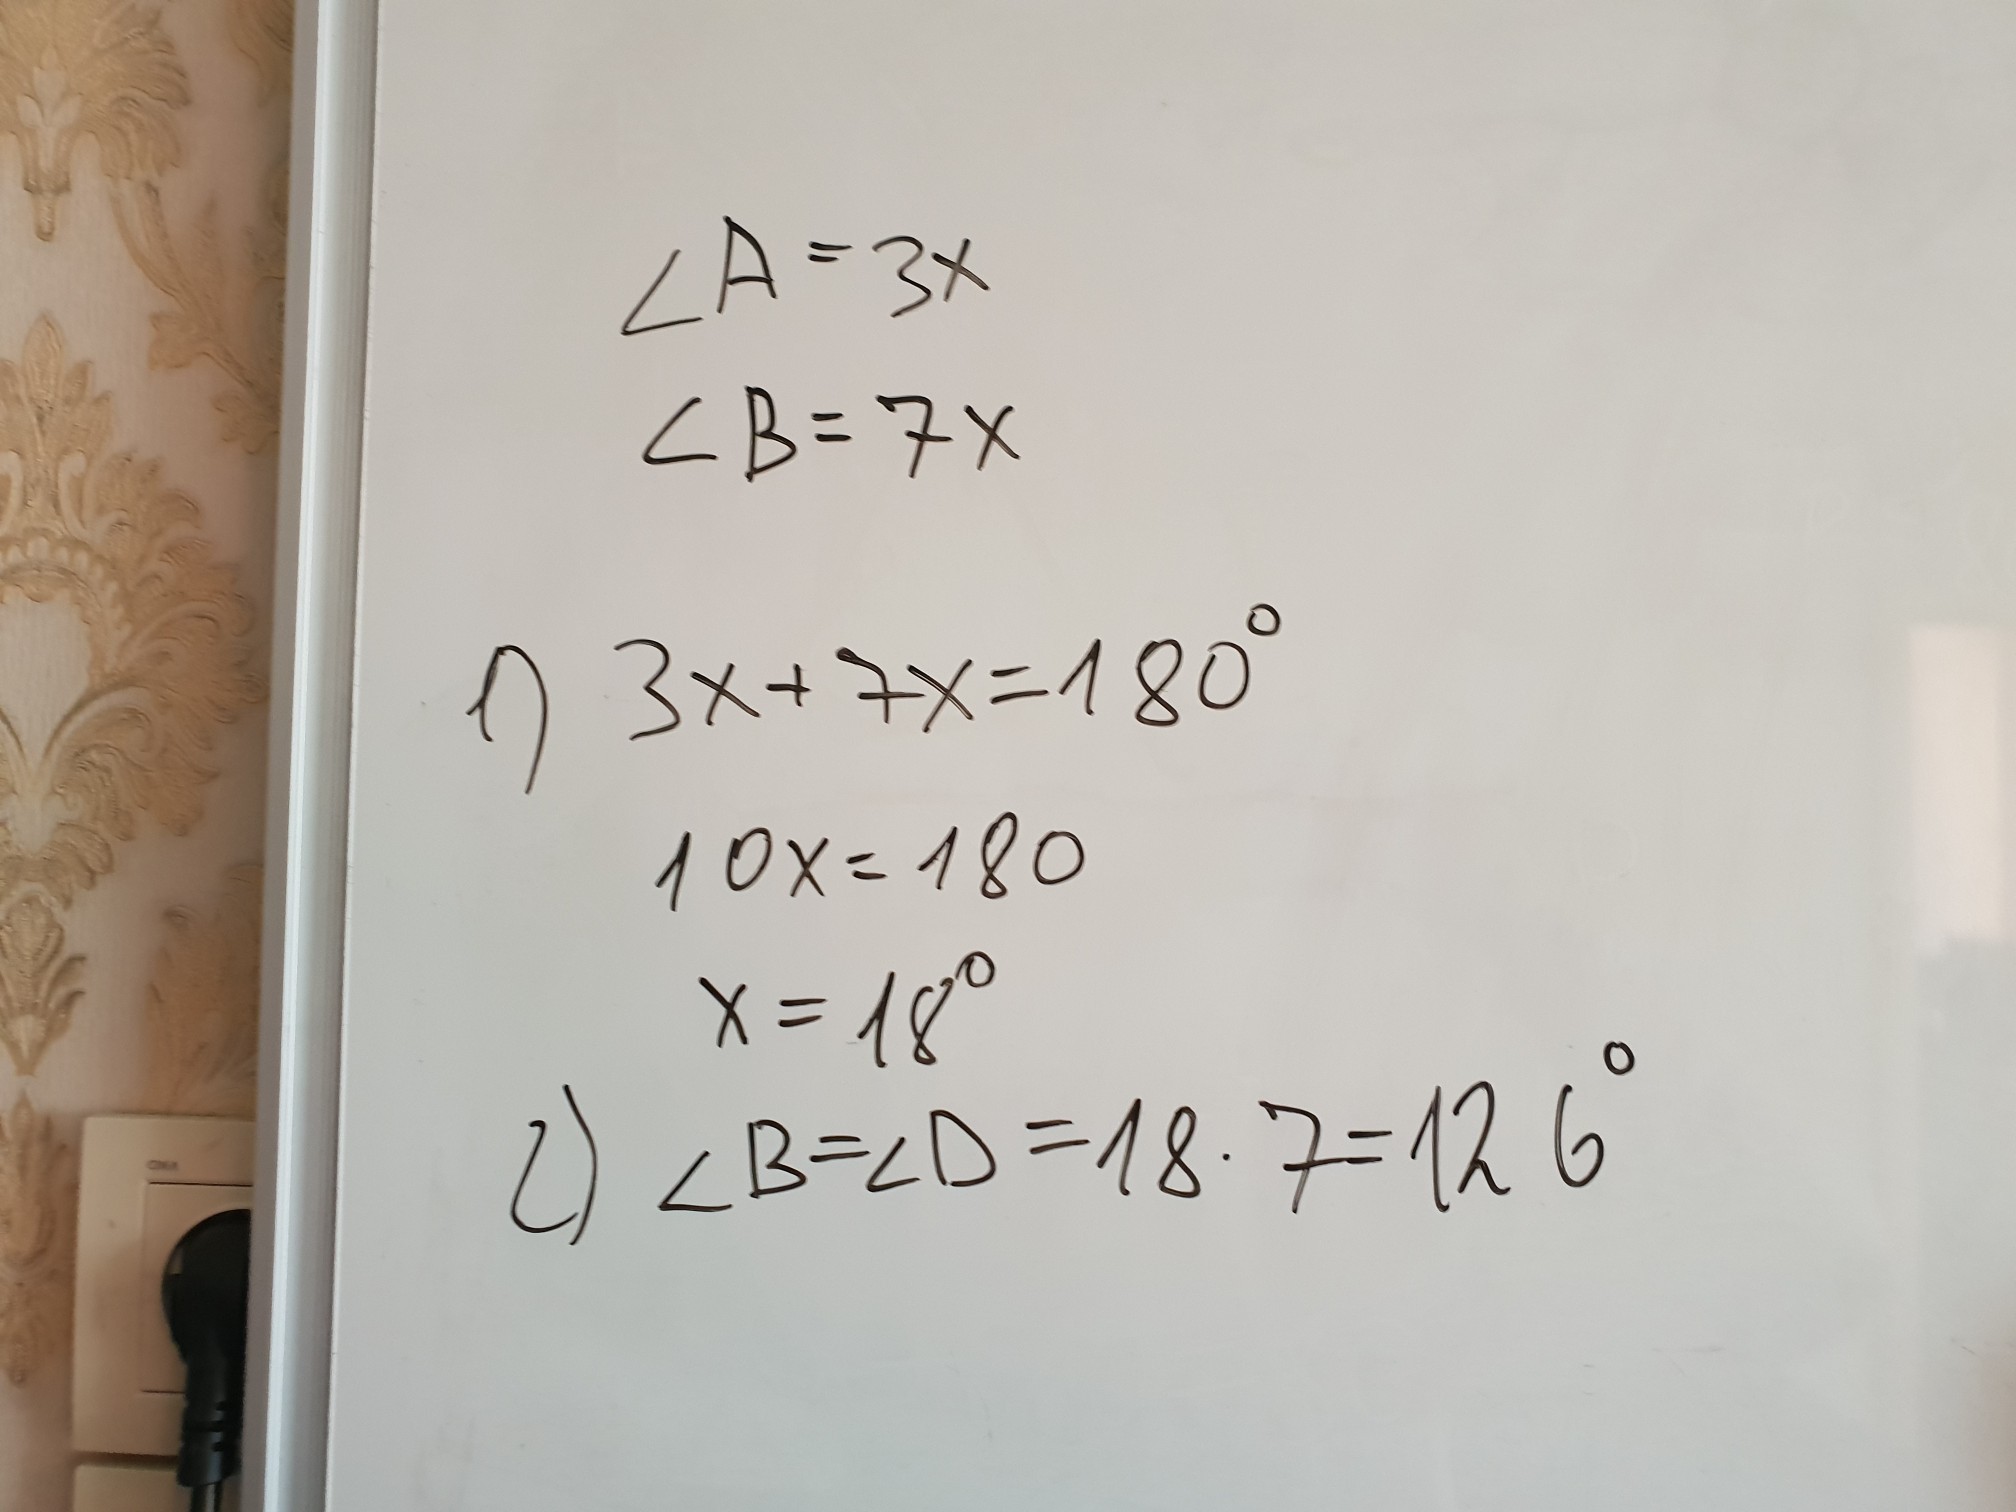 ∠A=3x
∠B=7x
1) 3x+7x=180°
10x=180
x=18°
2) ∠B=∠D=18·7=126°